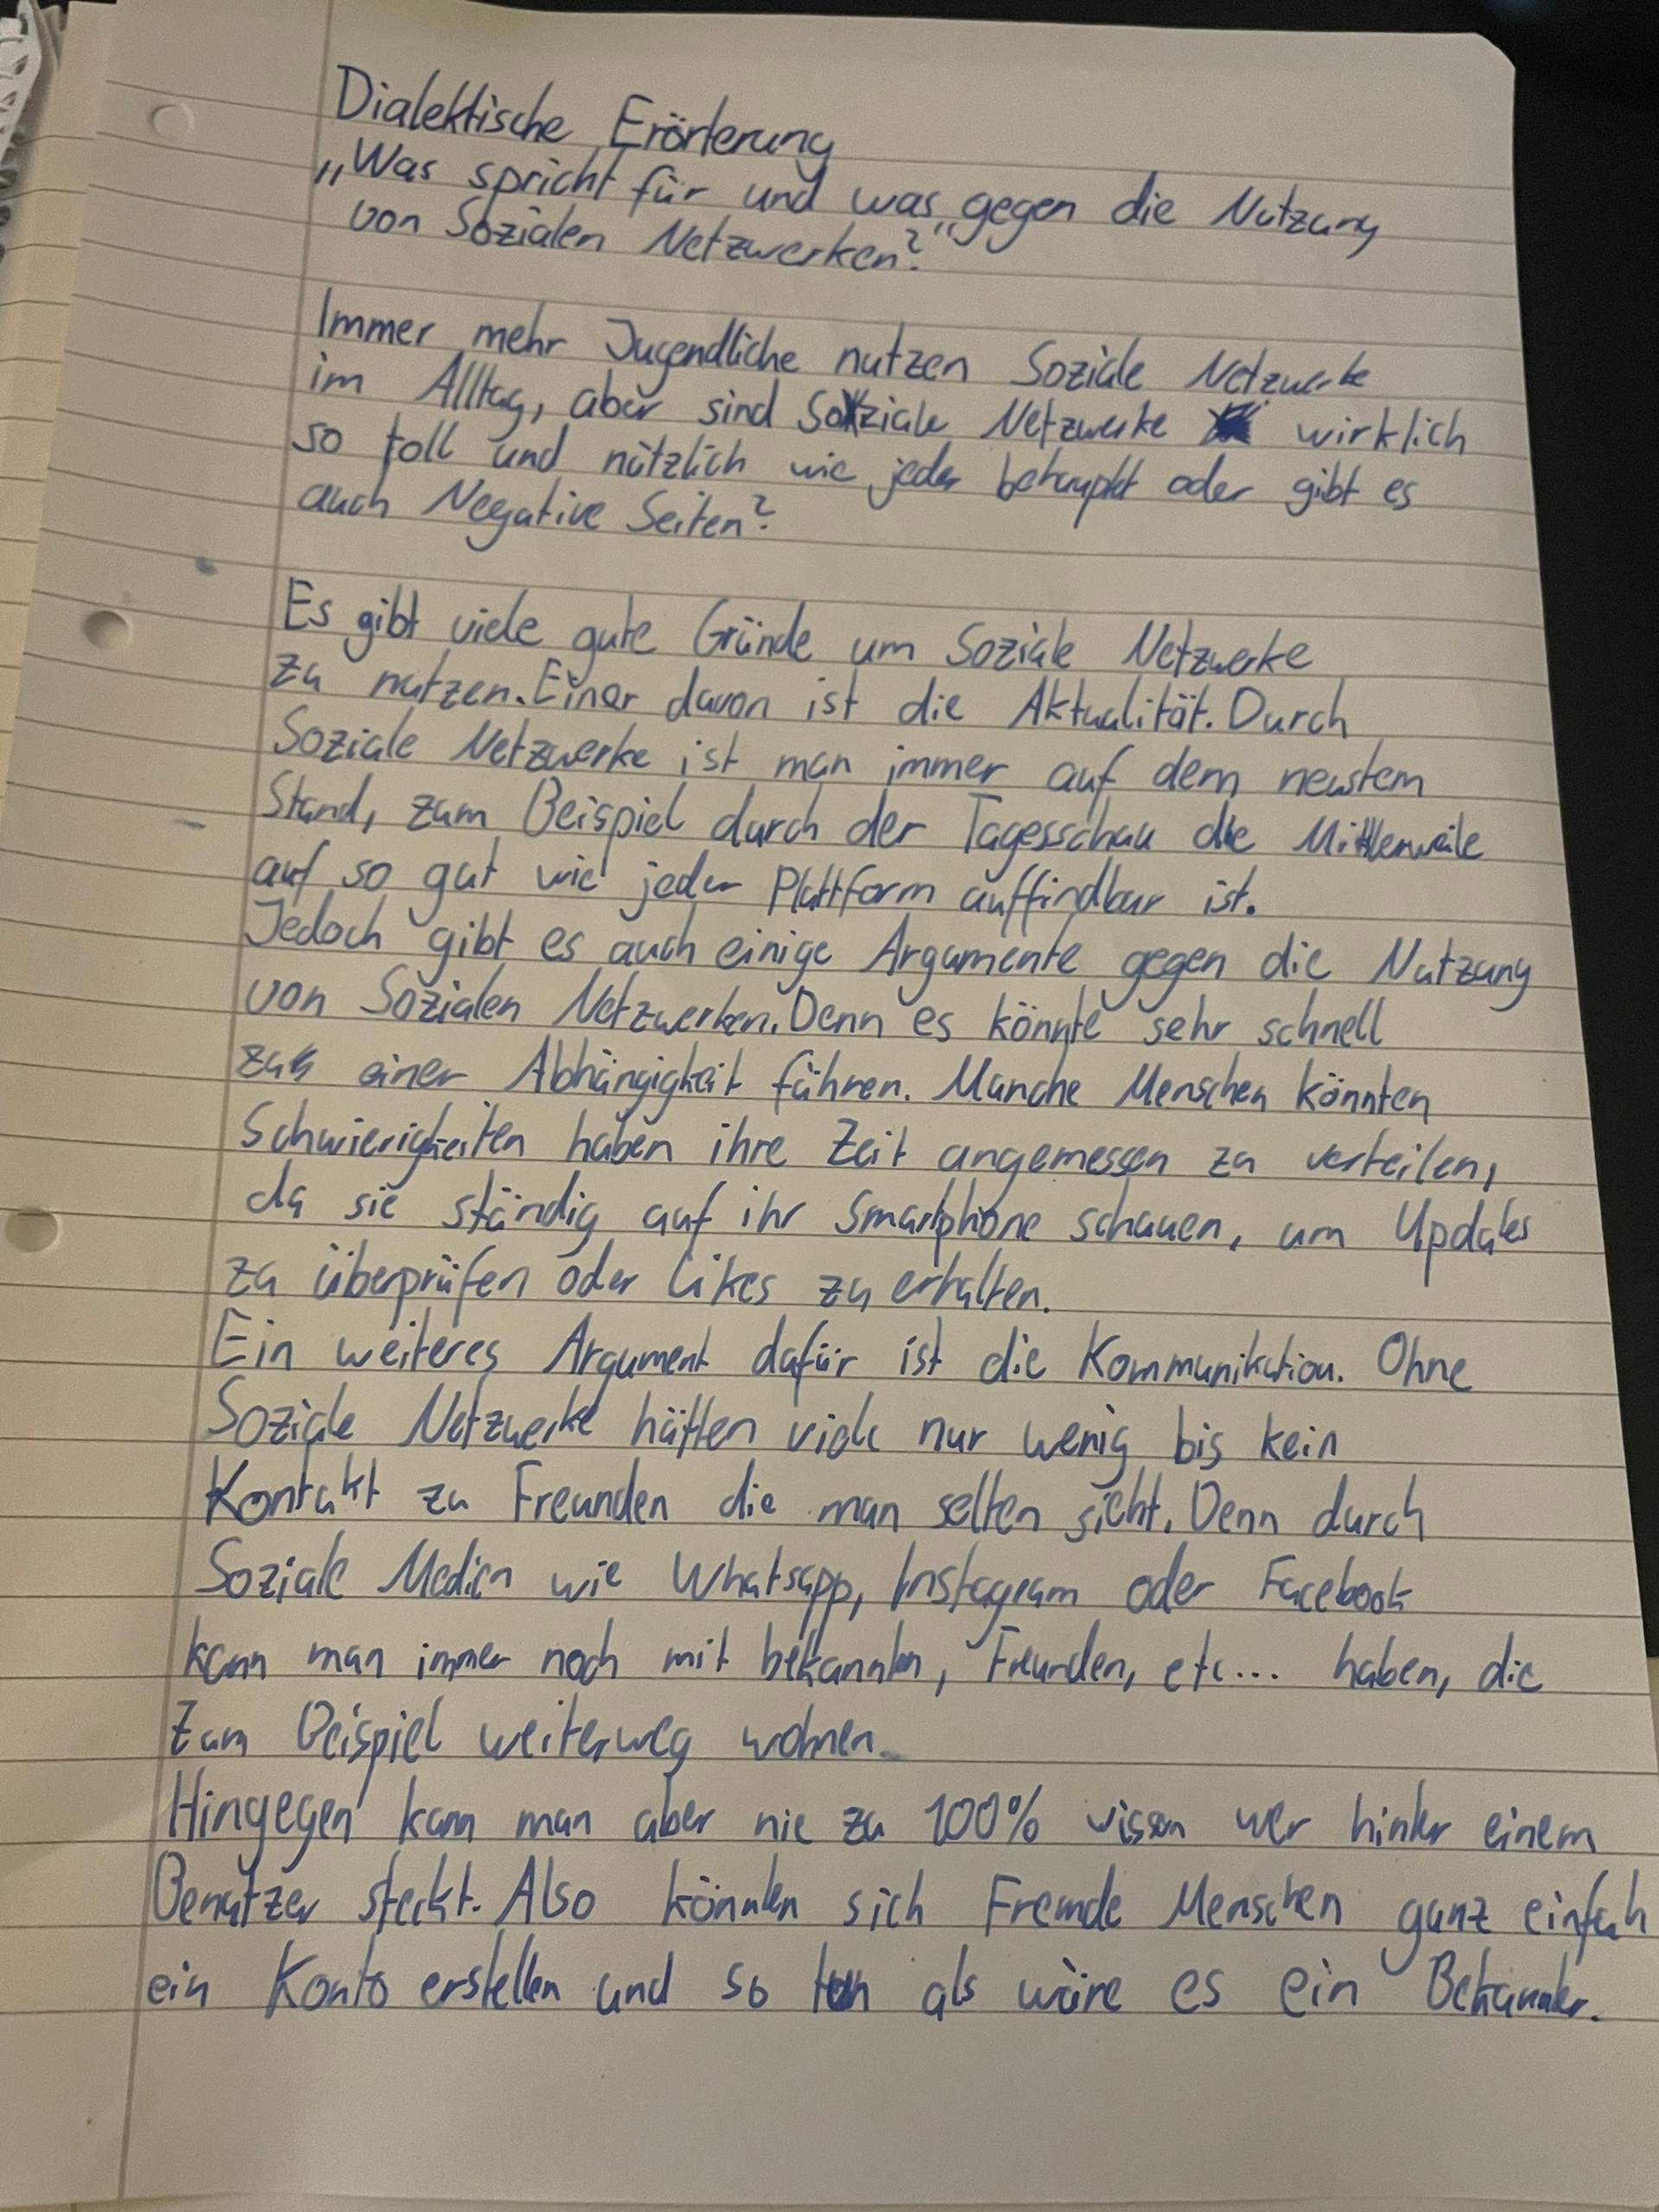 Dialektische Erörterung
„Was spricht für und was gegen die Nutzung
von Sozialen Netzwerken?“
Immer mehr Jugendliche nutzen Soziale Netzwerke
im Alltag, aber sind Soziale Netzwerke wirklich
so toll und nützlich wie jeder behauptet oder gibt es
auch Negative Seiten?
Es gibt viele gute Gründe um Soziale Netzwerke
zu nutzen. Einer davon ist die Aktualität. Durch
Soziale Netzwerke ist man immer auf dem neustem
Stand, zum Beispiel durch der Tagesschau die Mittlerweile
auf so gut wie jeder Plattform auffindbar ist.
Jedoch gibt es auch einige Argumente gegen die Nutzung
von Sozialen Netzwerken. Denn es könnte sehr schnell
zu einer Abhängigkeit führen. Manche Menschen könnten
Schwierigkeiten haben ihre Zeit angemessen zu verteilen,
da sie ständig auf ihr Smartphone schauen, um Updates
zu überprüfen oder Likes zu erhalten.
Ein weiteres Argument dafür ist die Kommunikation. Ohne
Soziale Netzwerke hätten viele nur wenig bis kein
Kontakt zu Freunden die man selten sieht. Denn durch
Soziale Medien wie Whatsapp, Instagram oder Facebook
kann man immer noch mit bekannten, Freunden, etc... haben, die
Zum Beispiel weiterweg wohnen.
Hingegen kann man aber nie zu 100% wissen wer hinter einem
Benutzer steckt. Also könnten sich Fremde Menschen ganz einfach
ein Konto erstellen und so tun als wäre es ein Bekannter.